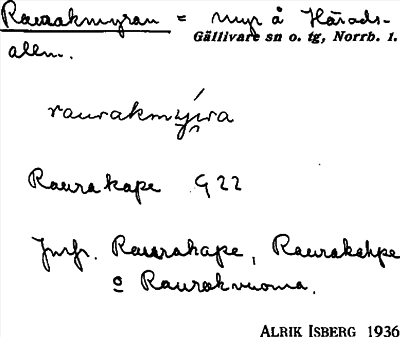 Raurakmyran = myr å Härads-
Gällivare sn o. tg, Norrb. 1.
allm.
raurakmy̭ra
Raurakape G 22
Jmfr. Raurakape, Raurakahpe
o Raurakvuoma.
ALRIK ISBERG 1936